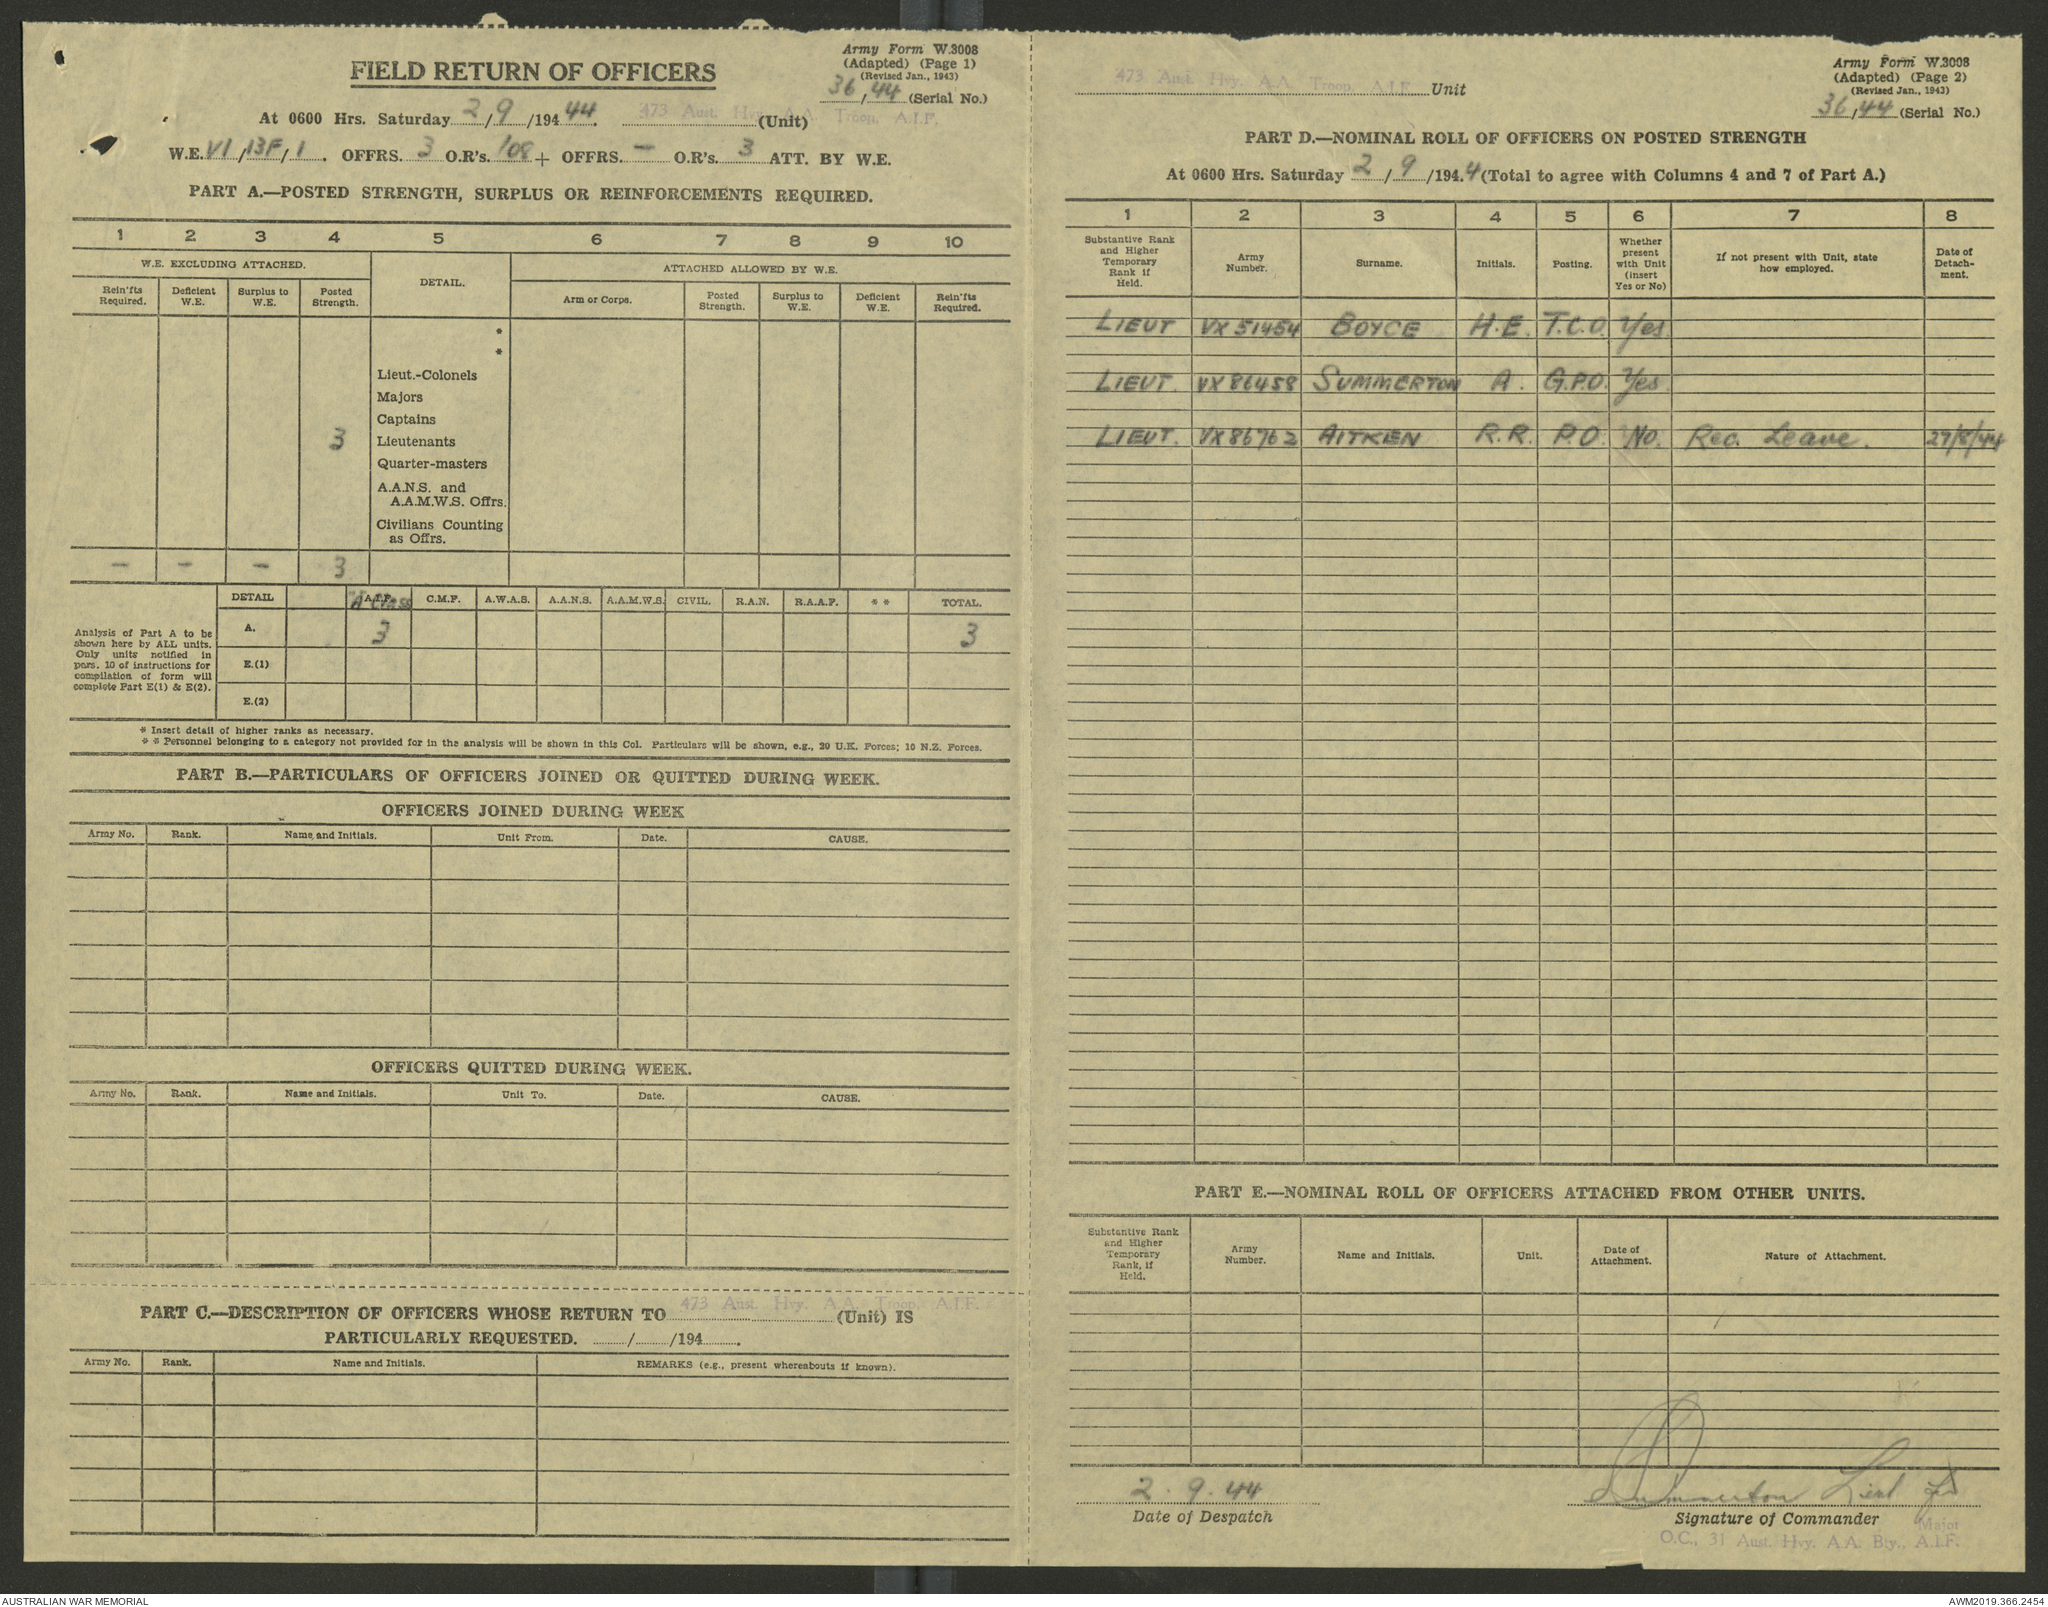 Army Form W.3008
(Adapted) (Page 1)
(Revised Jan., 1943)
36/44 (Serial No.)
FIELD RETURN OF OFFICERS
At 0600 Hrs. Saturday 2/9/1944. 473 Aust. Hvy. A.A. Troop, A.I.F. (Unit)
W.E. VI/13F/1. OFFRS. 3 O.R's. 108 + OFFRS. — O.R's. 3 ATT. BY W.E.
PART A.—POSTED STRENGTH, SURPLUS OR REINFORCEMENTS REQUIRED.
1 2 3 4 5 6 7 8 9 10
W.E. EXCLUDING ATTACHED. DETAIL. ATTACHED ALLOWED BY W.E.
Rein'fts Required. Deficient W.E. Surplus to W.E. Posted Strength. Arm or Corps. Posted Strength. Surplus to W.E. Deficient W.E. Rein'fts Required.
*
*
Lieut.-Colonels
Majors
Captains
3 Lieutenants
Quarter-masters
A.A.N.S. and
A.A.M.W.S. Offrs.
Civilians Counting
as Offrs.
— — — 3
DETAIL A.I.F. "A" Class C.M.F. A.W.A.S. A.A.N.S. A.A.M.W.S. CIVIL. R.A.N. R.A.A.F. * * TOTAL.
Analysis of Part A to be
shown here by ALL units.
Only units notified in
para. 10 of instructions for
compilation of form will
complete Part E(1) & E(2).
A. 3 3
E.(1)
E.(2)
* Insert detail of higher ranks as necessary.
* * Personnel belonging to a category not provided for in the analysis will be shown in this Col. Particulars will be shown, e.g., 20 U.K. Forces; 10 N.Z. Forces.
PART B.—PARTICULARS OF OFFICERS JOINED OR QUITTED DURING WEEK.
OFFICERS JOINED DURING WEEK
Army No. Rank. Name and Initials. Unit From. Date. CAUSE.
OFFICERS QUITTED DURING WEEK.
Army No. Rank. Name and Initials. Unit To. Date. CAUSE.
PART C.—DESCRIPTION OF OFFICERS WHOSE RETURN TO 473 Aust. Hvy. A.A. Troop, A.I.F. (Unit) IS
PARTICULARLY REQUESTED. / /194 .
Army No. Rank. Name and Initials. REMARKS (e.g., present whereabouts if known).
Army Form W.3008
(Adapted) (Page 2)
(Revised Jan., 1943)
36/44 (Serial No.)
473 Aust. Hvy. A.A. Troop, A.I.F. Unit
PART D.—NOMINAL ROLL OF OFFICERS ON POSTED STRENGTH
At 0600 Hrs. Saturday 2/9/1944 (Total to agree with Columns 4 and 7 of Part A.)
1 2 3 4 5 6 7 8
Substantive Rank and Higher Temporary Rank if Held. Army Number. Surname. Initials. Posting. Whether present with Unit (insert Yes or No) If not present with Unit, state how employed. Date of Detachment.
LIEUT VX51454 BOYCE H.E. T.C.O. Yes
LIEUT. VX86458 SUMMERTON A. G.P.O. Yes
LIEUT. VX86762 AITKEN R.R. P.O. No. Rec. Leave. 27/8/44
PART E.—NOMINAL ROLL OF OFFICERS ATTACHED FROM OTHER UNITS.
Substantive Rank and Higher Temporary Rank, if Held. Army Number. Name and Initials. Unit. Date of Attachment. Nature of Attachment.
2.9.44 Summerton Lieut for
Date of Despatch Signature of Commander
Major
O.C., 31 Aust. Hvy. A.A. Bty., A.I.F.
AUSTRALIAN WAR MEMORIAL AWM2019.366.2454